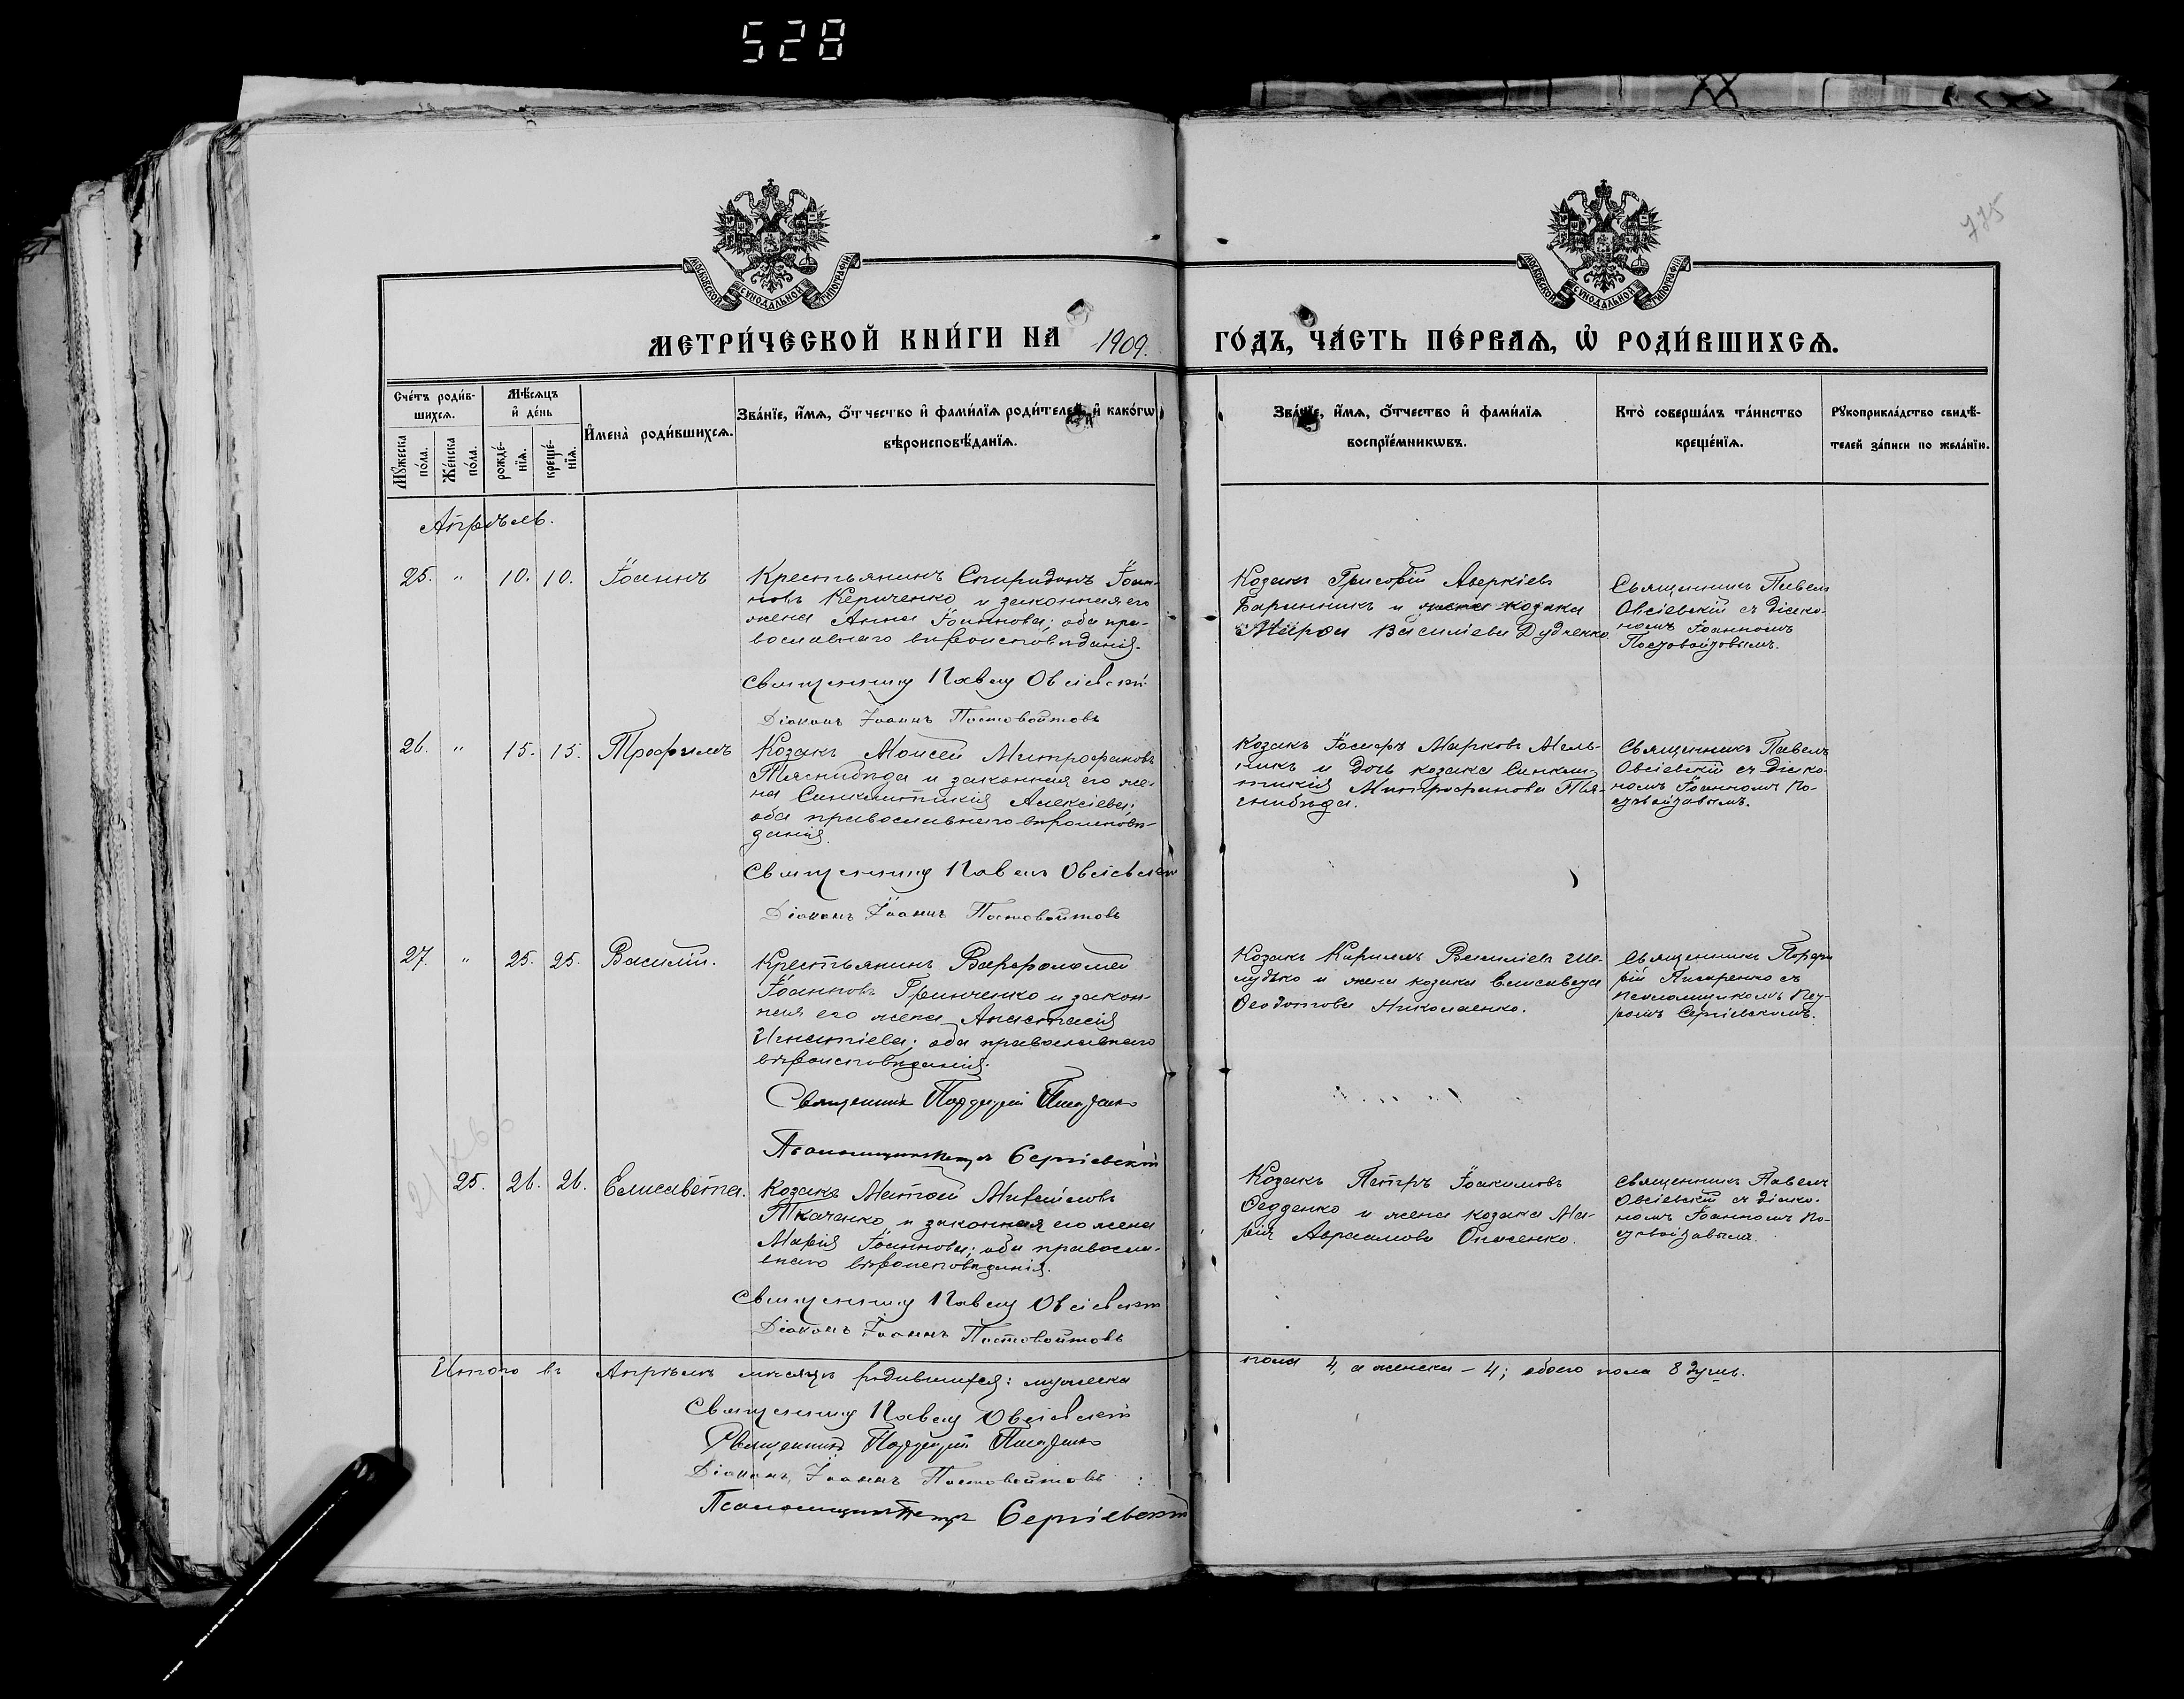 528
775
МОСКОВСКОЙ СѴНОДАЛЬНОЙ ТИПОГРАФІИ
МОСКОВСКОЙ СѴНОДАЛЬНОЙ ТИПОГРАФІИ
МЕТРИ́ЧЕСКОЙ КНИ́ГИ НА 1909. ГО́ДЪ, ЧА́СТЬ ПЕ́РВАѦ, Ѡ҆ РОДИ́ВШИХСѦ.
Сче́тъ роди́в-
шихсѧ.
Мꙋ́жеска по́ла.
Же́нска по́ла.
Мѣ́сѧцъ
и҆ де́нь
рожде́-
нїѧ.
креще́-
нїѧ.
И҆мена̀ роди́вшихсѧ.
Зва́нїе, и҆́мѧ, ѻ҆́тчество и҆ фами́лїѧ роди́телей, и҆ како́гѡ
вѣроисповѣ́данїѧ.
Зва́нїе, и҆́мѧ, ѻ҆́тчество и҆ фами́лїѧ
воспрїе́мникѡвъ.
Кто̀ соверша́лъ та́инство
креще́нїѧ.
Рꙋкоприкла́дство свидѣ́-
телей за́писи по жела́нїю.
Апрѣль.
25. " 10. 10. Іоаннъ
Крестьянинъ Спиридонъ Іоан-
новъ Кериченко и законная его
жена Анна Іоаннова; оба пра-
вославнаго вѣроисповѣданія.
Священникъ Павелъ Овсіевскій
Діаконъ Іоаннъ Постовойтовъ
Козакъ Григорій Аверкіевъ
Баринникъ и жена козака
Марѳа Васильева Дудченко
Священникъ Павелъ
Овсіевскій съ діако-
номъ Іоанномъ
Постовойтовымъ.
26. " 15. 15. Трофимъ
Козакъ Моисей Митрофановъ
Тягнибѣда и законная его же-
на Синклитикія Алексіева;
оба православнаго вѣроисповѣ-
данія.
Священникъ Павелъ Овсіевскій
Діаконъ Іоаннъ Постовойтовъ
Козакъ Іосифъ Марковъ Мель-
никъ и дочь козака Синкли-
тикія Митрофанова Тя-
гнибѣда.
Священникъ Павелъ
Овсіевскій съ діако-
номъ Іоанномъ По-
стовойтовымъ.
27. " 25. 25. Василій.
Крестьянинъ Варѳоломей
Іоанновъ Гринченко и закон-
ная его жена Анастасія
Игнатіева; оба православнаго
вѣроисповѣданія.
Священникъ Порфирій Писаренко
Псаломщикъ Петръ Сергіевскій
Козакъ Кириллъ Василіевъ Ше-
лудько и жена козака Елисавета
Ѳеодотова Николаенко.
Священникъ Порфи
рій Писаренко съ
псаломщикомъ Пет-
ромъ Сергіевскимъ.
25. 26. 26. Елисавета.
Козакъ Матѳей Михайловъ
Ткаченко и законная его жена
Марія Іоаннова; оба правосла-
внаго вѣроисповѣданія.
Священникъ Павелъ Овсіевскій
Діаконъ Іоаннъ Постовойтовъ
Козакъ Петръ Іоакимовъ
Ѳедденко и жена козака Ма-
рія Авраамова Онасенко.
Священникъ Павелъ
Овсіевскій съ діако-
номъ Іоанномъ По-
стовойтовымъ.
Итого въ Апрѣлѣ мѣсяцѣ родившихся: мужеска пола 4, а женска – 4; обоего пола 8 душъ.
Священникъ Павелъ Овсіевскій
Священникъ Порфирій Писаренко
Діаконъ Іоаннъ Постовойтовъ
Псаломщикъ Петръ Сергіевскій